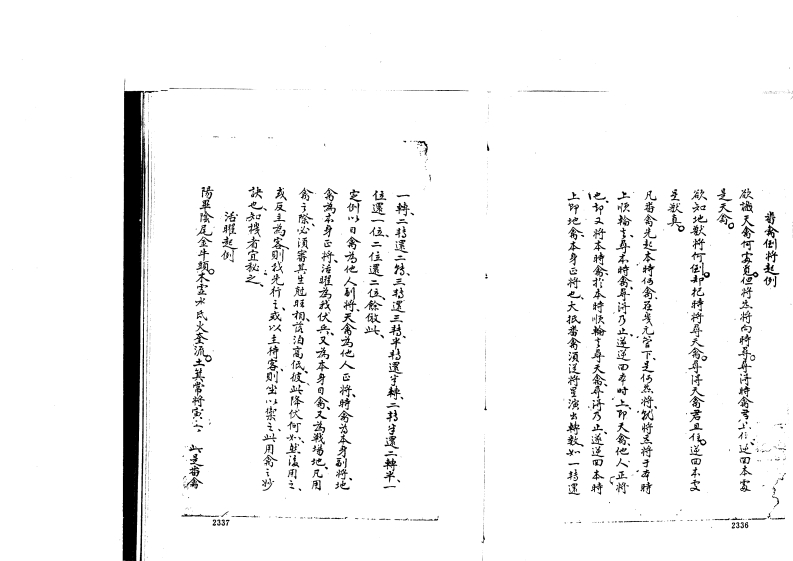 番禽倒將起例
欲識天禽何處覓但將
將向時尋尋得時禽
逆回本處
是天禽
欲知地獸將何倒却把時將尋天禽尋得天禽君且住逆回本處
是獸真
凡番禽先起本時何禽
管下是何
將就將
將于本時
上順輪去尋本時禽尋得乃止逆逆回本時上即天禽他人正將
也却又將本時禽於本時順輪去尋天禽尋得乃止逆逆回本時
上即地禽本身正將也大抵番禽須逆將星演出轉數如一轉還
2336
一轉二轉還二轉三轉還三轉半轉還半轉二轉半還二轉半一
位還一位二位還二位餘倣此
定例以日禽為他人副將天禽為他人正將時禽為本身副將地
禽為本身正將活曜為我伏兵又為本身日禽又為戰場地凡用
禽之際必須審其生剋旺相該泊高低彼此降伏何如然後用之
或反主為客則我先行之或以主待客則坐以禦之此用禽之妙
訣也知機者宜秘之
活曜起例
陽畢陰尾金牛頭木
氐火奎流土箕常將寅
此是番禽
2337